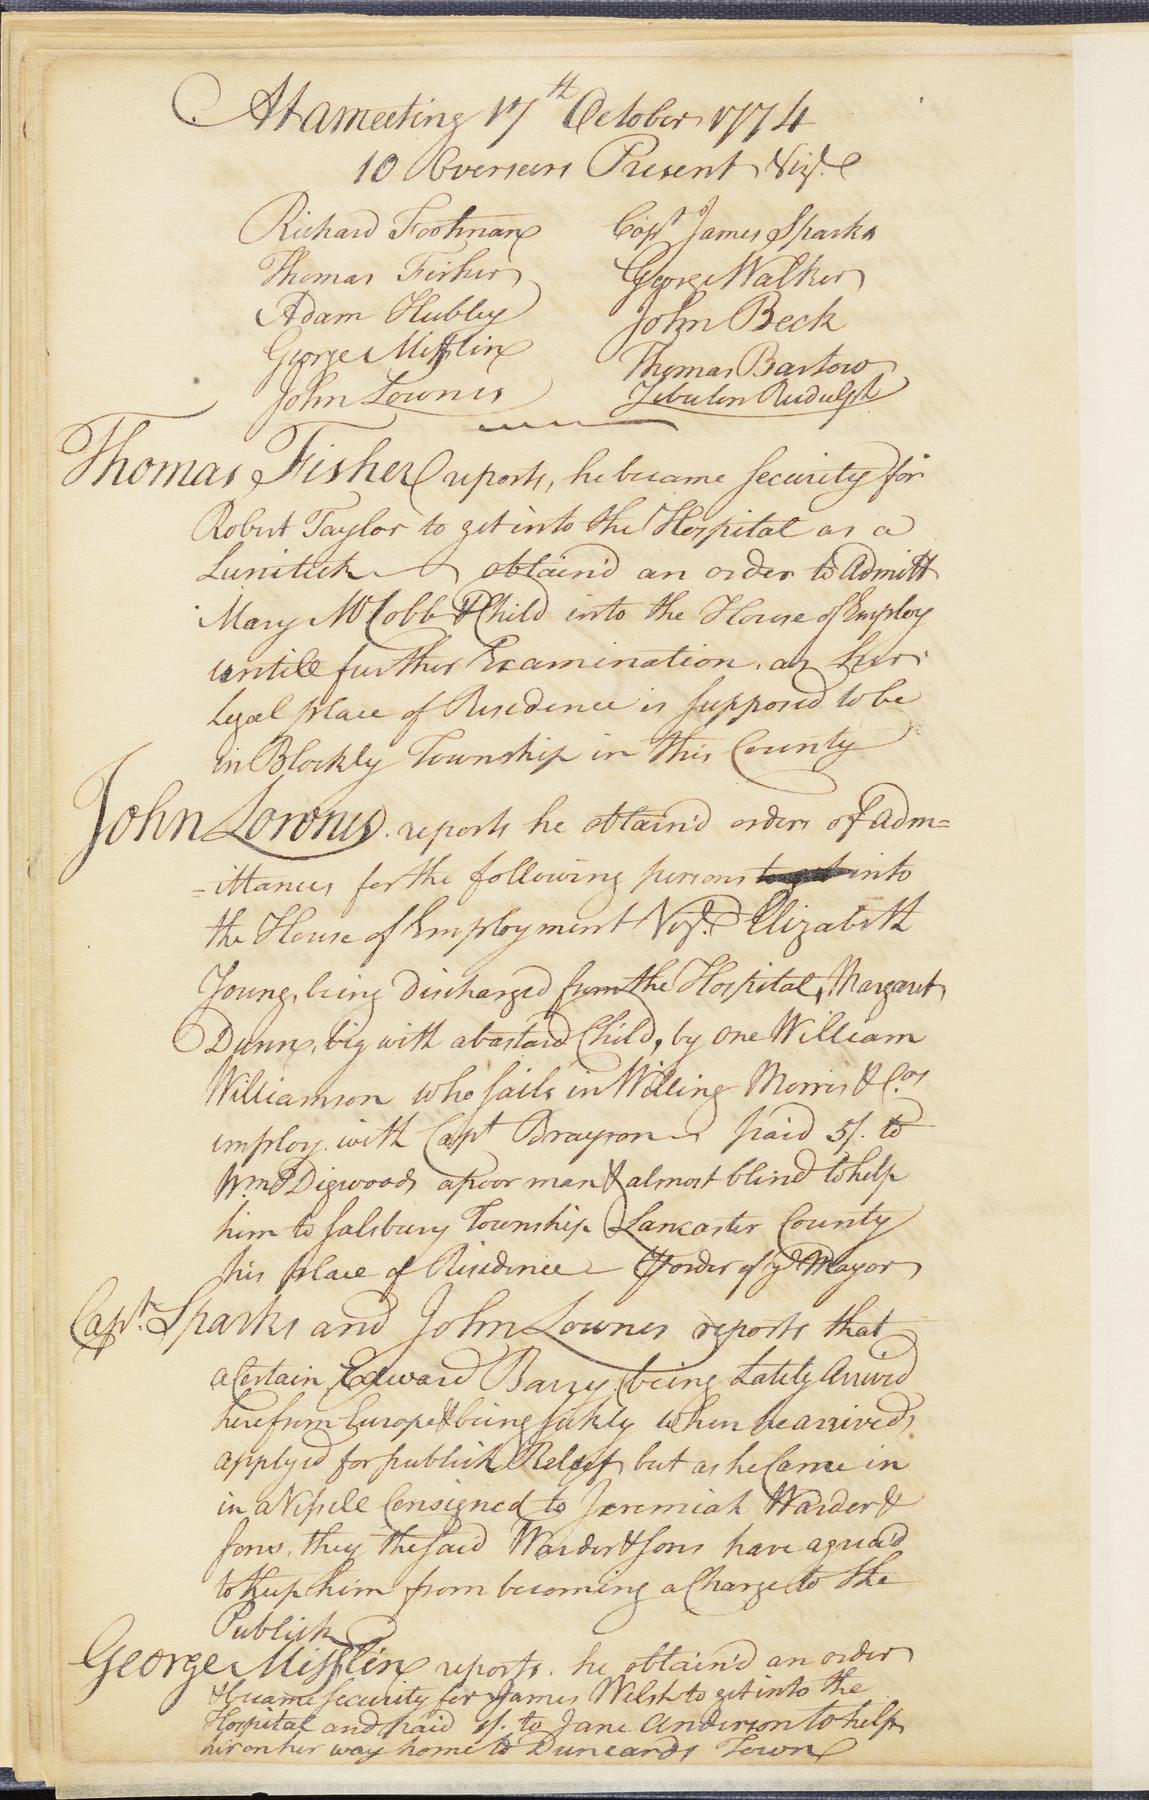 At a meeting 17th October 1774
10 Overseers Present Vizt.
Richard Footman
Thomas Fisher
Adam Hubley
George Mifflin
John Lownes
Capt James Sparks
George Walker
John Beck
Thomas Bartow
Zebulon Rudulph
Thomas Fisher reports, he became Security for
Robert Taylor to get into the Hospital as a
Lunitick obtain'd an order to Admitt
Mary McCobb & Child into the House of Employ
untill further Examination, as her
Legal place of Residence is supposed to be
in Blockly Township in this County
John Lownes reports he obtain'd orders of Adm=
=ittances for the following persons to get into
the House of Employment Vizt. Elizabeth
Young, being discharged from the Hospital, Margaret
Dunn, big with a bastard Child, by one William
Williamson who sails in Willing Morris & Cos
employ. with Capt paid 5/. to
Wm Digwoods a poor man & almost blind to help
him to Salsbury Township Lancaster County
his place of Residence order of ye Mayor
Capt. Sparks and John Lownes reports that
a Certain Edward Barry being Lately Arrived
here from Europe & being sickly when he arrived,
applyed for publick Relief but as he Came in
in a Vessell Consigned to Jeremiah Warder &
Sons, they the said Warder & Sons have agreed
to keep him from becoming a Charge to the
Publick
George Mifflin reports. he obtain'd an order
& became Security for James Welsh to get into the
Hospital and paid to Jane Anderson to help
her on her way home to Duncards Town